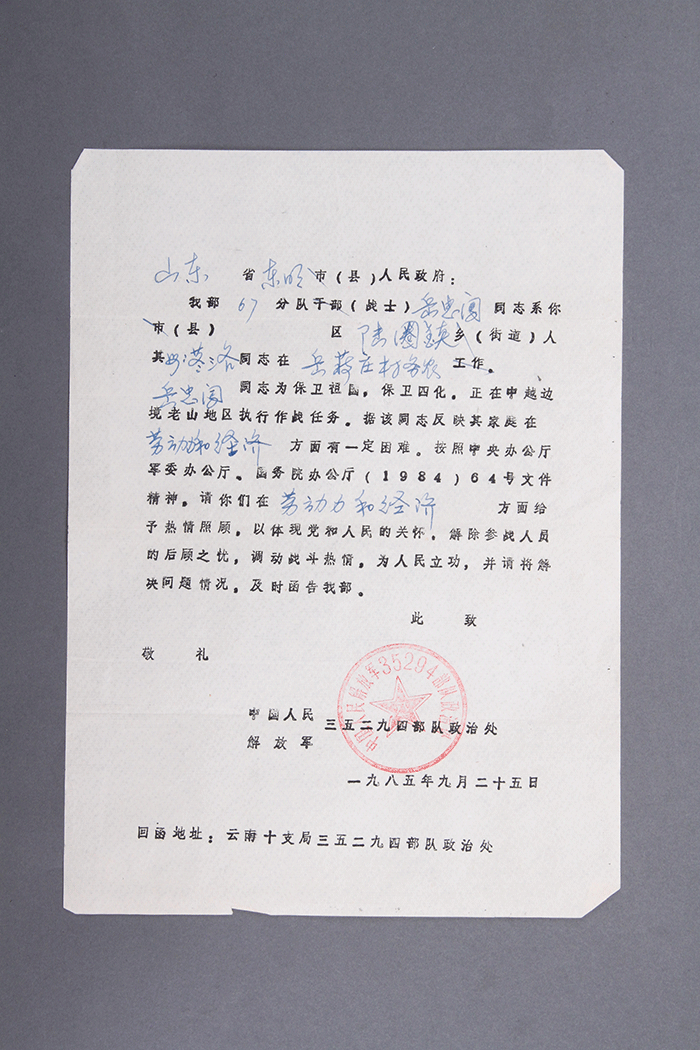 山东 省 东明 市(县)人民政府：
我部 67 分队干部(战士)岳忠阁 同志系你
市(县) 区 陆圈镇 乡(街道)人
其 同志在 岳蒋庄村务农 工作。
岳忠阁 同志为保卫祖国，保卫四化，正在中越边
境老山地区执行作战任务。据该同志反映其家庭在
劳动力和经济 方面有一定困难。按照中央办公厅
军委办公厅。国务院办公厅(1984)64号文件
精神。请你们在 劳动力和经济 方面给
予热情照顾。以体现党和人民的关怀，解除参战人员
的后顾之忧，调动战斗热情。为人民立功，并请将解
决问题情况，及时函告我部。
此 致
敬 礼
中国人民解放军35294部队政治处
中国人民
解放军 三五二九四部队政治处
一九八五年九月二十五日
回函地址：云南十支局三五二九四部队政治处